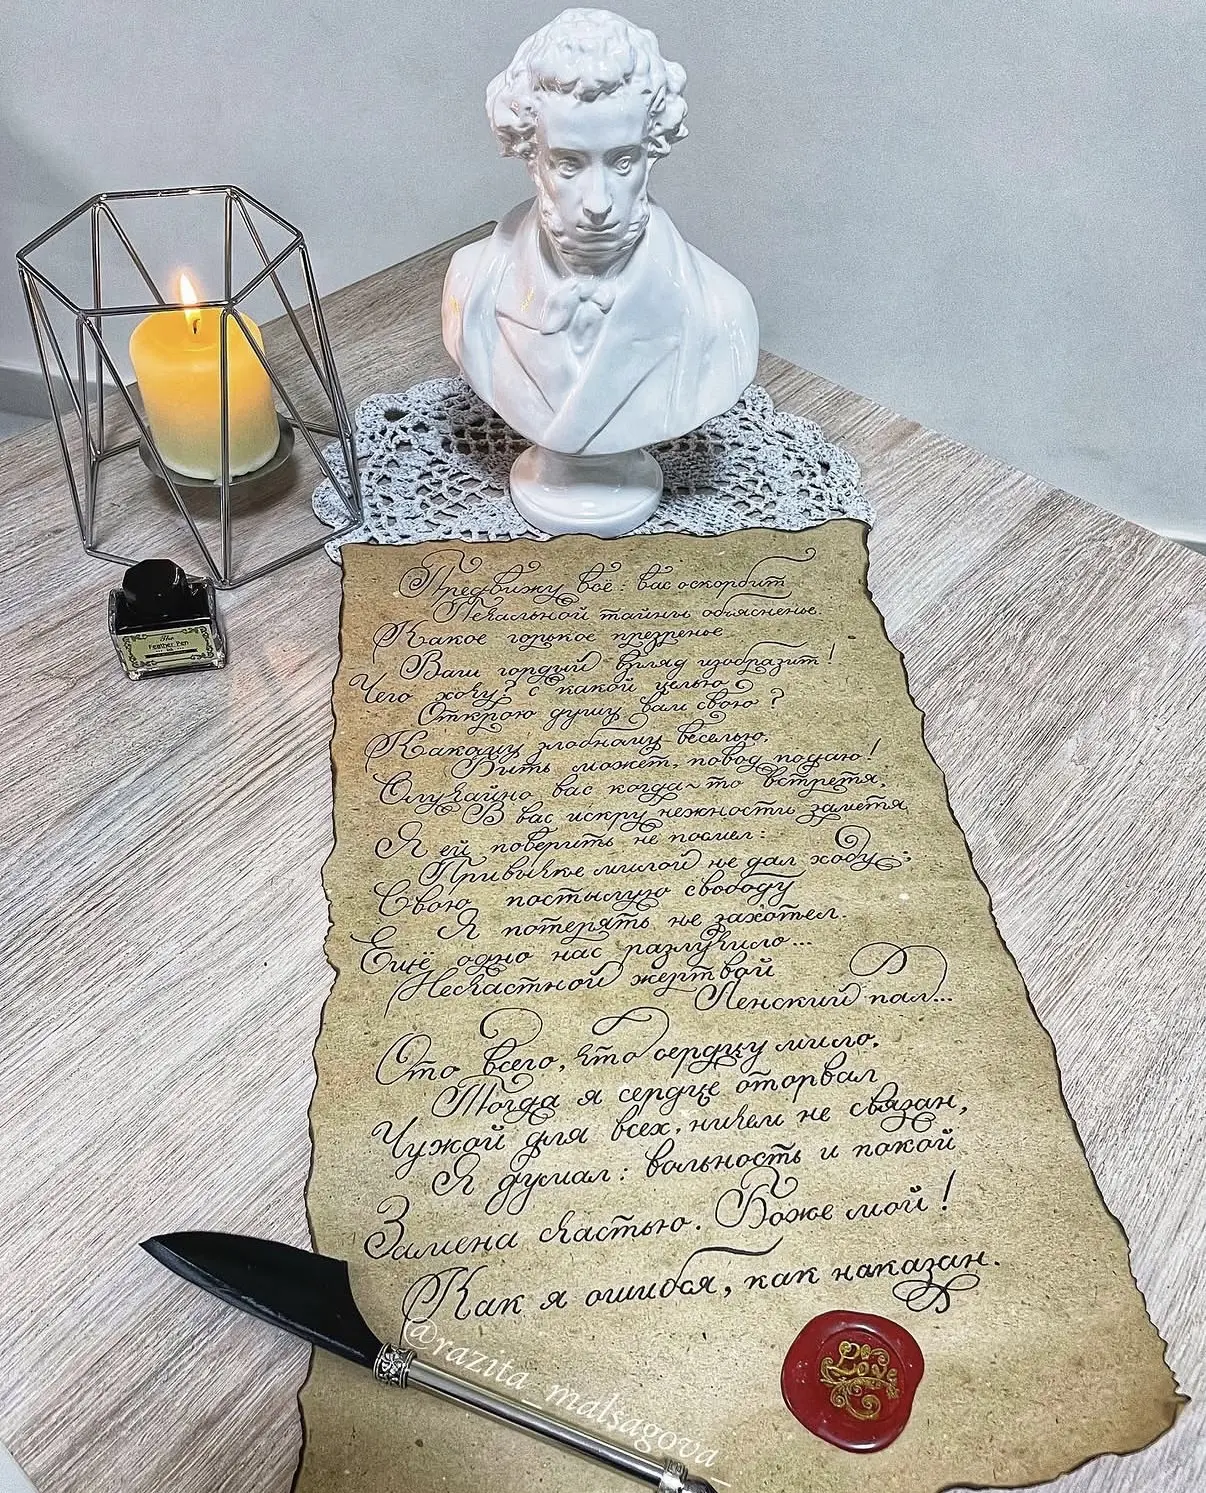 The
Feather Pen
Предвижу всё: вас оскорбит
Печальной тайны объясненье.
Какое горькое презренье
Ваш гордый взгляд изобразит!
Чего хочу? с какой целью
Открою душу вам свою?
Какому злобному веселью,
Быть может, повод подаю!
Случайно вас когда-то встретя,
В вас искру нежности заметя,
Я ей поверить не посмел:
Привычке милой не дал ходу;
Свою постылую свободу
Я потерять не захотел.
Ещё одно нас разлучило...
Несчастной жертвой
Ленский пал...
Ото всего, что сердцу мило,
Тогда я сердце оторвал
Чужой для всех, ничем не связан,
Я думал: вольность и покой
Замена счастью. Боже мой!
Как я ошибся, как наказан.
@razita_malsagova_
Love